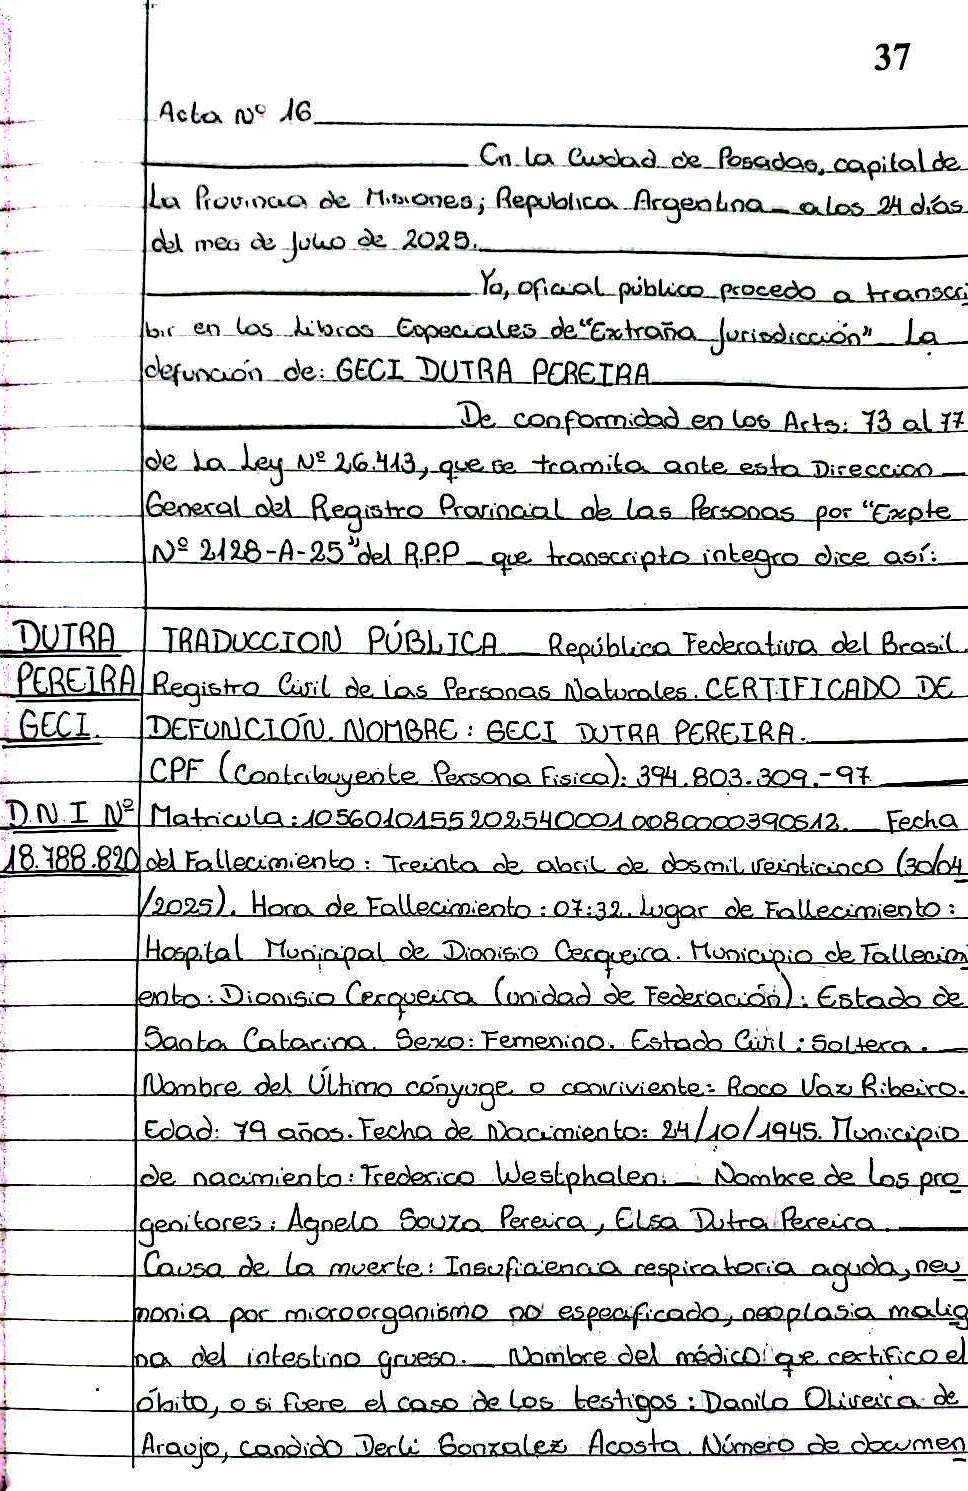 37
Acta Nº 16
En la Ciudad de Posadas, capital de
La Provincia de Misiones; Republica Argentina - a los 24 días
del mes de Julio de 2025.
Yo, oficial público procedo a transcri
bir en los Libros Especiales de "Extraña Jurisdicción" La
defunción de: GECI DUTRA PEREIRA
De conformidad en los Arts: 73 al 77
de La Ley Nº 26.413, que se tramita ante esta Direccion
General del Registro Provincial de las Personas por "Expte
Nº 2128-A-25" del R.P.P - que transcripto integro dice así:
DUTRA
PEREIRA
GECI.
D.N.I Nº
18.788.820
TRADUCCION PÚBLICA - República Federativa del Brasil.
Registro Civil de las Personas Naturales. CERTIFICADO DE
DEFUNCIÓN. NOMBRE: GECI DUTRA PEREIRA.
CPF (Contribuyente Persona Fisica): 394.803.309.-97
Matricula: 10560101552025400010080000390512. Fecha
del Fallecimiento: Treinta de abril de dosmil veinticinco (30/04
/2025). Hora de Fallecimiento: 07:32. Lugar de Fallecimiento:
Hospital Municipal de Dionisio Cerqueira. Municipio de Fallecim
ento: Dionisio Cerqueira (unidad de Federación): Estado de
Santa Catarina. Sexo: Femenino. Estado Civil: Soltera.
Nombre del Último cónyuge o conviviente: Roco Vaz Ribeiro.
Edad: 79 años. Fecha de Nacimiento: 24/10/1945. Municipio
de nacimiento: Frederico Westphalen. - Nombre de los pro
genitores: Agnelo Souza Pereira, Elsa Dutra Pereira.
Causa de la muerte: Insuficiencia respiratoria aguda, neu
monia por microorganismo no especificado, neoplasia malig
na del intestino grueso. - Nombre del médico que certifico el
óbito, o si fuere el caso de los testigos: Danilo Oliveira de
Araujo, candido Derli Gonzalez Acosta. Número de documen